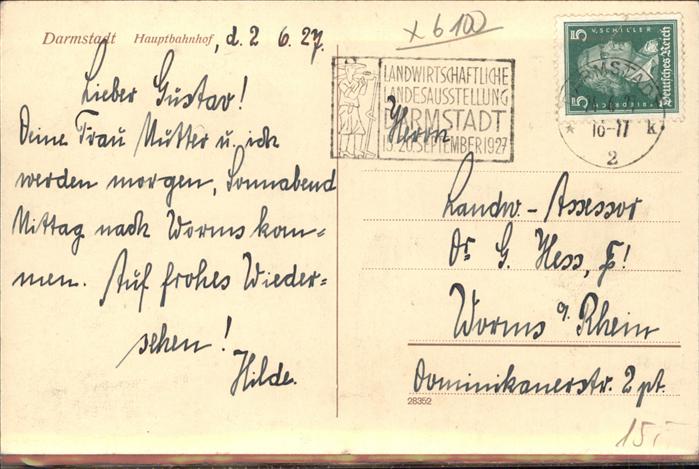 x 6 100
Darmstadt Hauptbahnhof, d. 2 6. 27.
Lieber Gustav!
Deine Frau Mutter u. ich
werden morgen, Sonnabend
Mittag nach Worms kom-
men. Auf frohes Wieder-
sehen!
Hilde.
LANDWIRTSCHAFTLICHE
LANDESAUSSTELLUNG
DARMSTADT
SEPTEMBER 1927
5 V. SCHILLER
Deutsches Reich
5
DARMSTADT
16-17 k
2
Herrn
Landw.- Assessor
Dr G. Hess,
Worms a. Rhein
Dominikanerstr. 2 pt.
28352
15,-